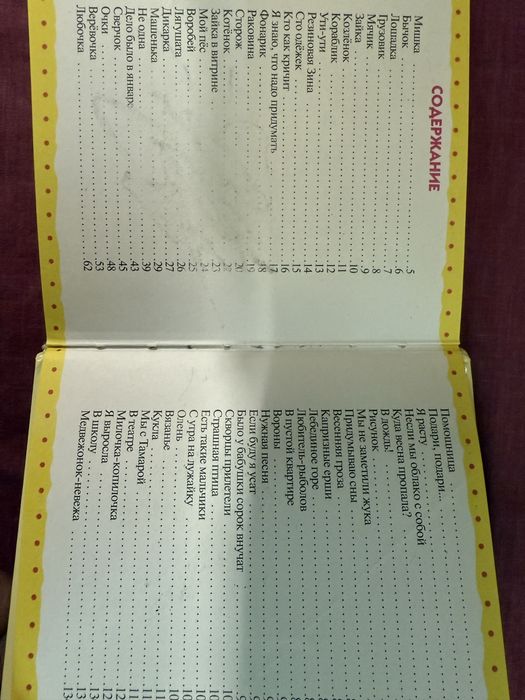 СОДЕРЖАНИЕ
Мишка . . . . . 5
Бычок . . . . . 6
Лошадка . . . . . 7
Грузовик . . . . . 8
Мячик . . . . . 9
Зайка . . . . . 10
Козлёнок . . . . . 11
Кораблик . . . . . 12
Ути-ути . . . . . 13
Резиновая Зина . . . . . 14
Сто одёжек . . . . . 15
Кто как кричит . . . . . 16
Я знаю, что надо придумать . . . . . 17
Фонарик . . . . . 18
Раковина . . . . . 19
Сторож . . . . . 20
Котёнок . . . . .
Зайка в витрине . . . . . 23
Мой пёс . . . . . 24
Воробей . . . . . 25
Лягушата . . . . . 26
Дикарка . . . . . 27
Машенька . . . . . 29
Не одна . . . . . 39
Дело было в январе . . . . . 43
Сверчок . . . . . 45
Очки . . . . . 48
Верёвочка . . . . . 53
Любочка . . . . . 62
Помощница
Подари, подари...
Я расту
Несли мы облако с собой
Куда весна пропала?
В дождь!
Рисунок
Мы не заметили жука
Придумываю сны
Весенняя гроза
Капризные ерши
Лебединое горе
Любитель-рыболов
В пустой квартире
Вороны
Нужная песня
Если буду я усат
Было у бабушки сорок внучат
Скворцы прилетели
Страшная птица
Есть такие мальчики
С утра на лужайку
Олень
Вязанье
Кукла
Мы с Тамарой
В театре
Милочка-копилочка
Я выросла
В школу
Медвежонок-невежа